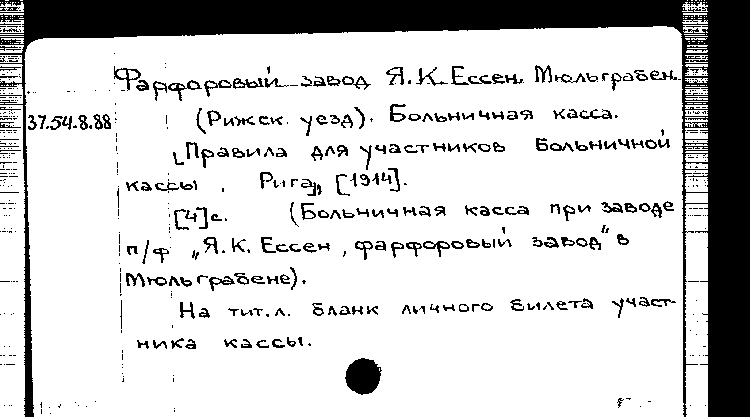 Фарфоровый завод Я.К.Ессен. Мюльграбен.
37.54.8.88 (Рижск. уезд). Больничная касса.
[Правила для участников больничной
кассы, Рига], [1914].
[4]с. (Больничная касса при заводе
п/ф „Я.К. Ессен, фарфоровый завод" в
Мюльграбене).
На тит.л. бланк личного билета участ-
ника кассы.